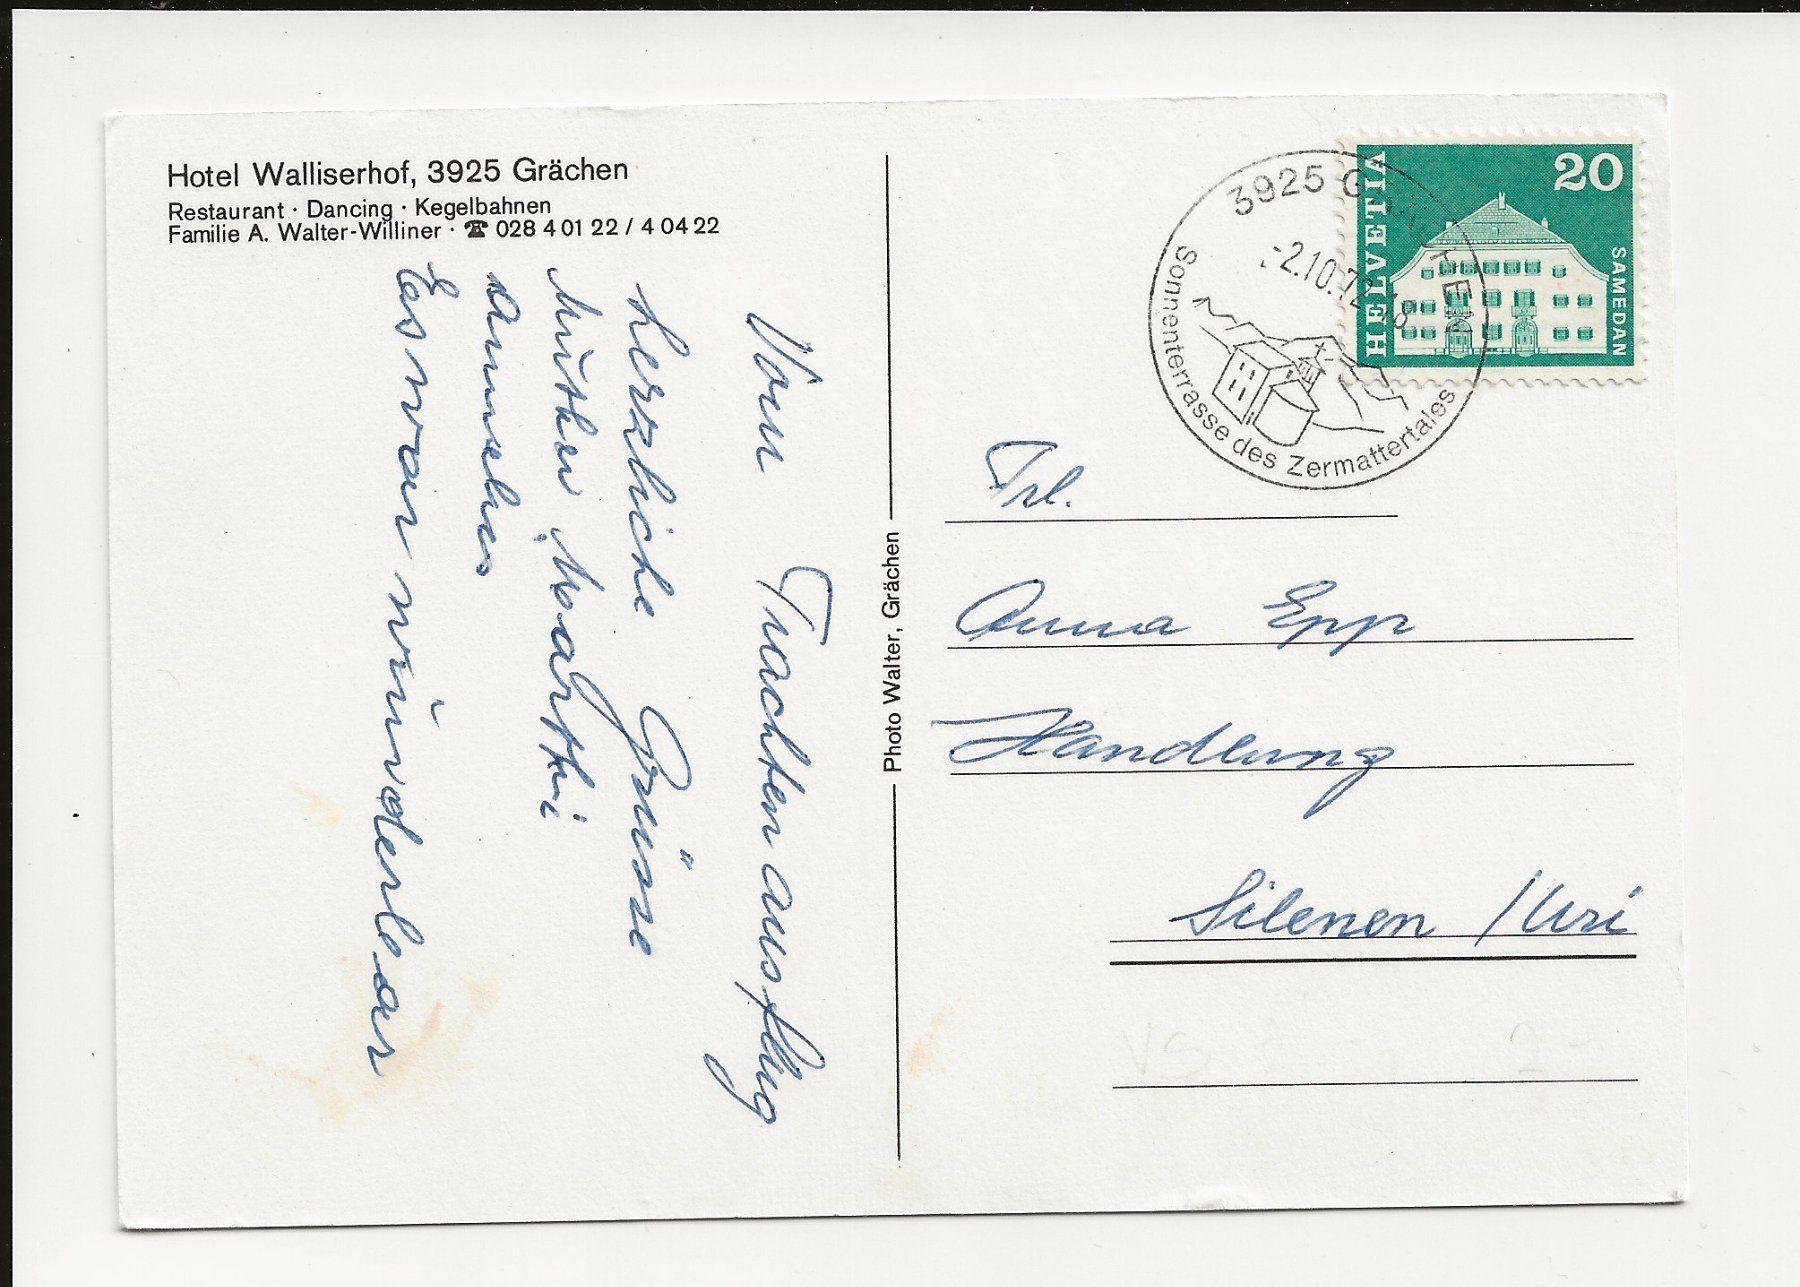 Hotel Walliserhof, 3925 Grächen
Restaurant · Dancing · Kegelbahnen
Familie A. Walter-Williner · ☎ 028 4 01 22 / 4 04 22
Vom Trachtenausflug
herzliche Grüsse
Marthi
Es war wunderbar
Photo Walter, Grächen
3925 GRÄCHEN
-2.10.72-18
Sonnenterrasse des Zermattertales
HELVETIA
20
SAMEDAN
Frl.
Anna Epp
Handlung
Silenen / Uri